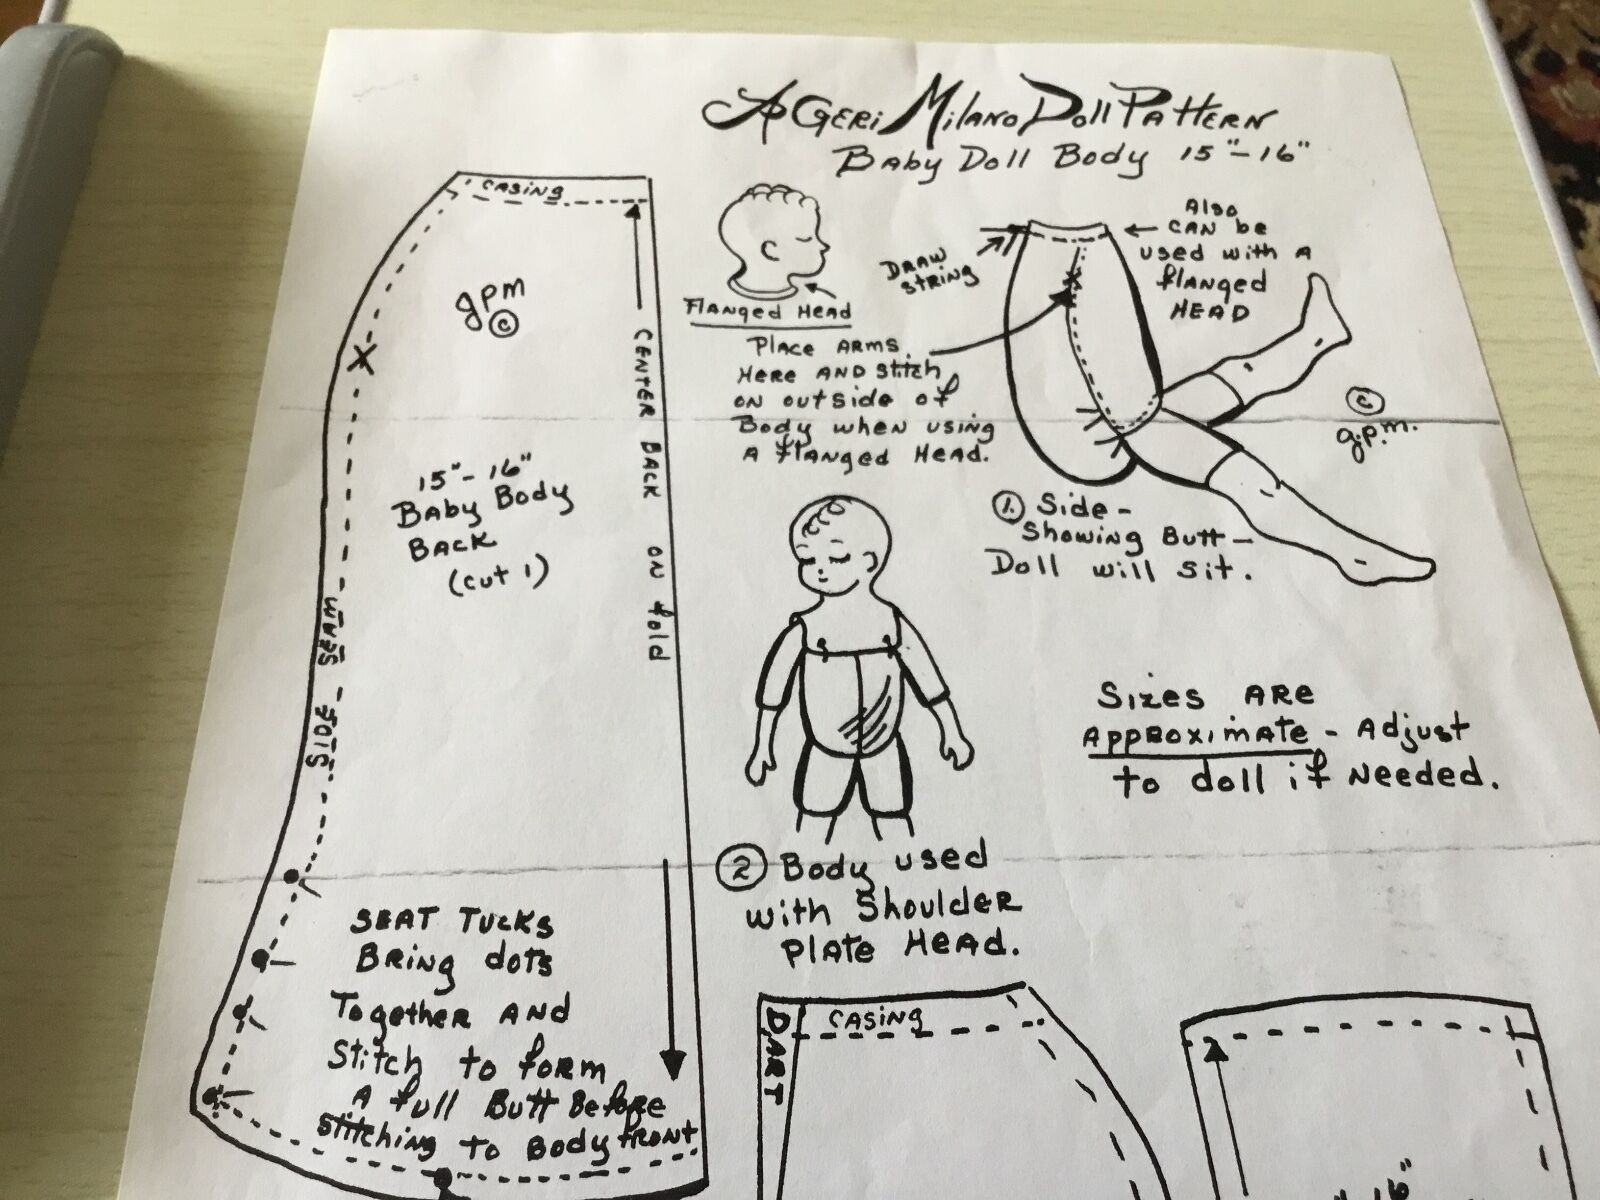 A Geri Milano Doll Pattern
Baby Doll Body 15"-16"
CASING
gpm
©
CENTER BACK ON fold
15"-16"
Baby Body
BACK
(cut 1)
SEAT TUCKS
BRING dots
Together AND
Stitch to form
A full Butt Before
Stitching to Body FRONT
Flanged Head
DRAW
STRING
Also
CAN be
used with A
flanged
HEAD
Place ARMS
Here AND stitch
ON outside of
Body when using
A flanged Head.
©
g.p.m.
1. Side -
Showing Butt -
Doll will sit.
Sizes ARE
Approximate - Adjust
to doll if needed.
2 Body used
with Shoulder
Plate Head.
DART
CASING
16"